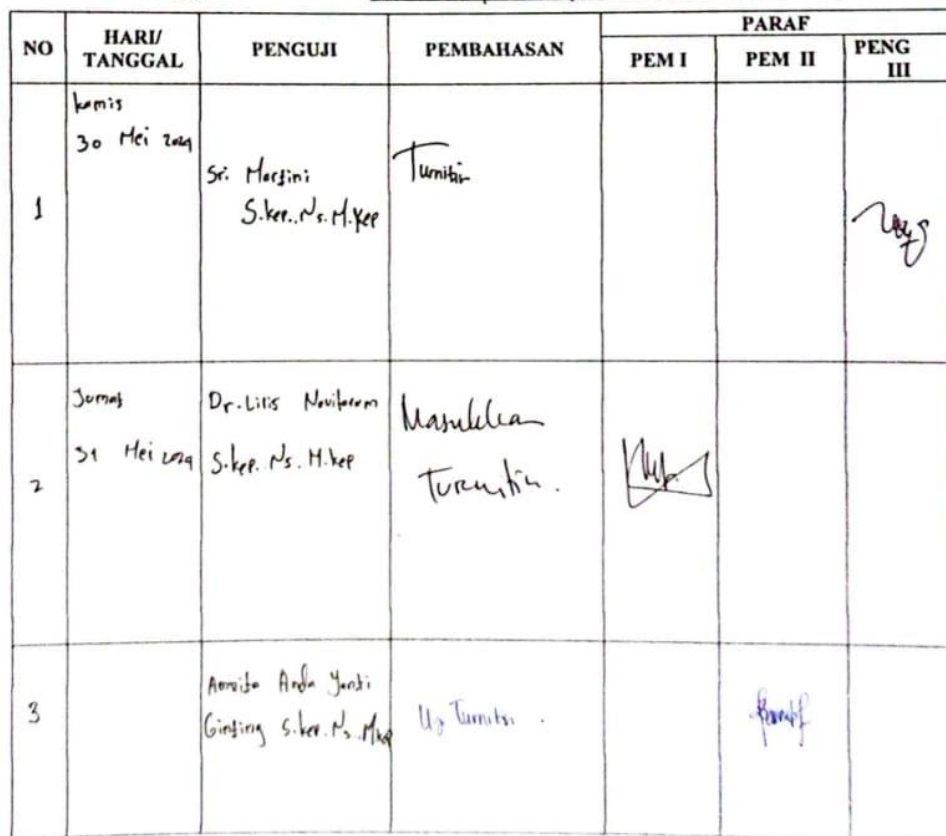 PARAF
NO HARI/ TANGGAL PENGUJI PEMBAHASAN PEM I PEM II PENG III
1
kamis
30 Mei 2024
Sri Martini
S.kep..Ns.M.kep
Turnitin
2
Jumat
31 Mei 2024
Dr. Lilis Novitarum
S.kep. Ns. M.kep
Masukkan
Turnitin.
3
Amnita Anda Yanti
Ginting S.kep. Ns. M.kep
Turnitin.